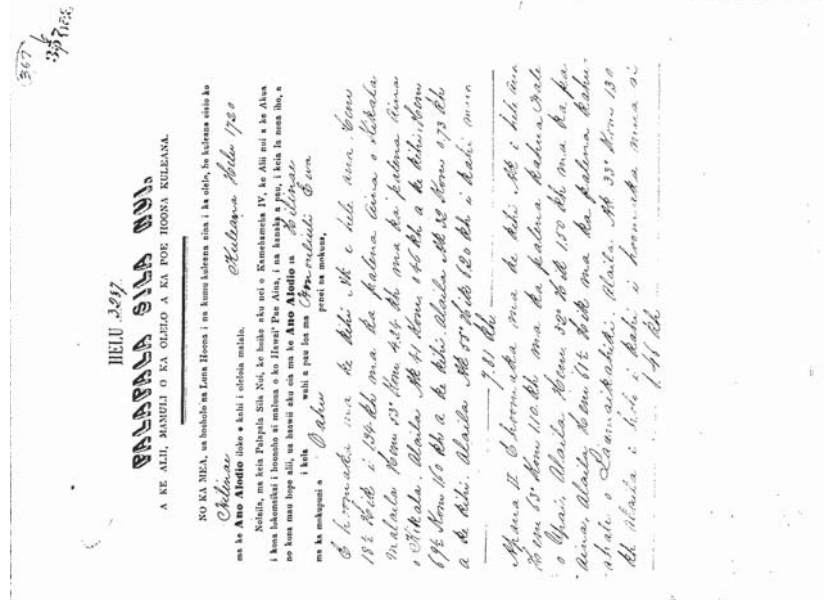 367
HELU 3257.
PALAPALA SILA NUI,
A KE ALII, MAMULI O KA OLELO A KA POE HOONA KULEANA.
NO KA MEA, ua hooholo na Luna Hoona i na kumu kuleana aina i ka olelo, he kuleana oiaio ko
Hilinae Kuleana Helu 1720
ma ke Ano Alodio iloko o kahi i oleloia malalo.
Nolaila, ma keia Palapala Sila Nui, ke hoike aku nei o Kamehameha IV, ke Alii nui a ke Akua
i kona lokomaikai i hoonoho ai maluna o ko Hawai' Pae Aina, i na kanaka a pau, i keia la nona iho, a
no kona mau hope alii, ua haawii aku oia ma ke Ano Alodio ia Hilinae
i kela wahi a pau loa ma Honouliuli Ewa
ma ka mokupuni o Oahu penei na mokuna,
E hoomaka ma ke kihi Ak e hele ana Hema
18½ Hik i 1,34 kh ma ka palena aina o Kikala
Malaila Hema 53° Kom 4,24 kh ma ka palena aina
o Kikala. Alaila Ak 41 Kom 0,46 kh a ke kihi, Hema
69½ Kom 1,60 kh a ke kihi Alaila Ak 32 Kom 0,73 kh
a ke kihi. Alaila Ak 55° Hik 6,20 kh i kahi mua
Apana II. E hoomaka ma ke kihi Ak i hele ana
Hem 63° Kom 1,10 kh ma ka palena kahua hale
o Opai. Alaila Hema 32° Hik 1,50 kh ma ka pa
aina, Alaila Hema 61½ Hik ma ka palena kahu-
Alaila Ak 33° Kom 1,30
kh Alaila i holo i kahi i hoomaka mua ai
1,46 kh